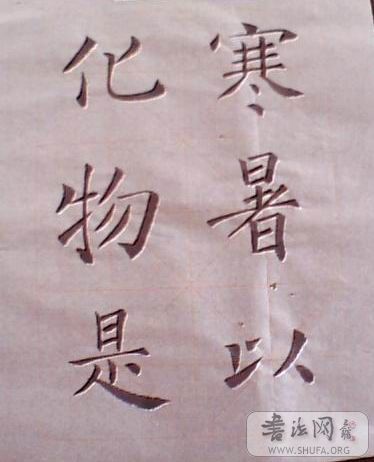 寒暑以
化物是
書法网
WWW.SHUFA.ORG